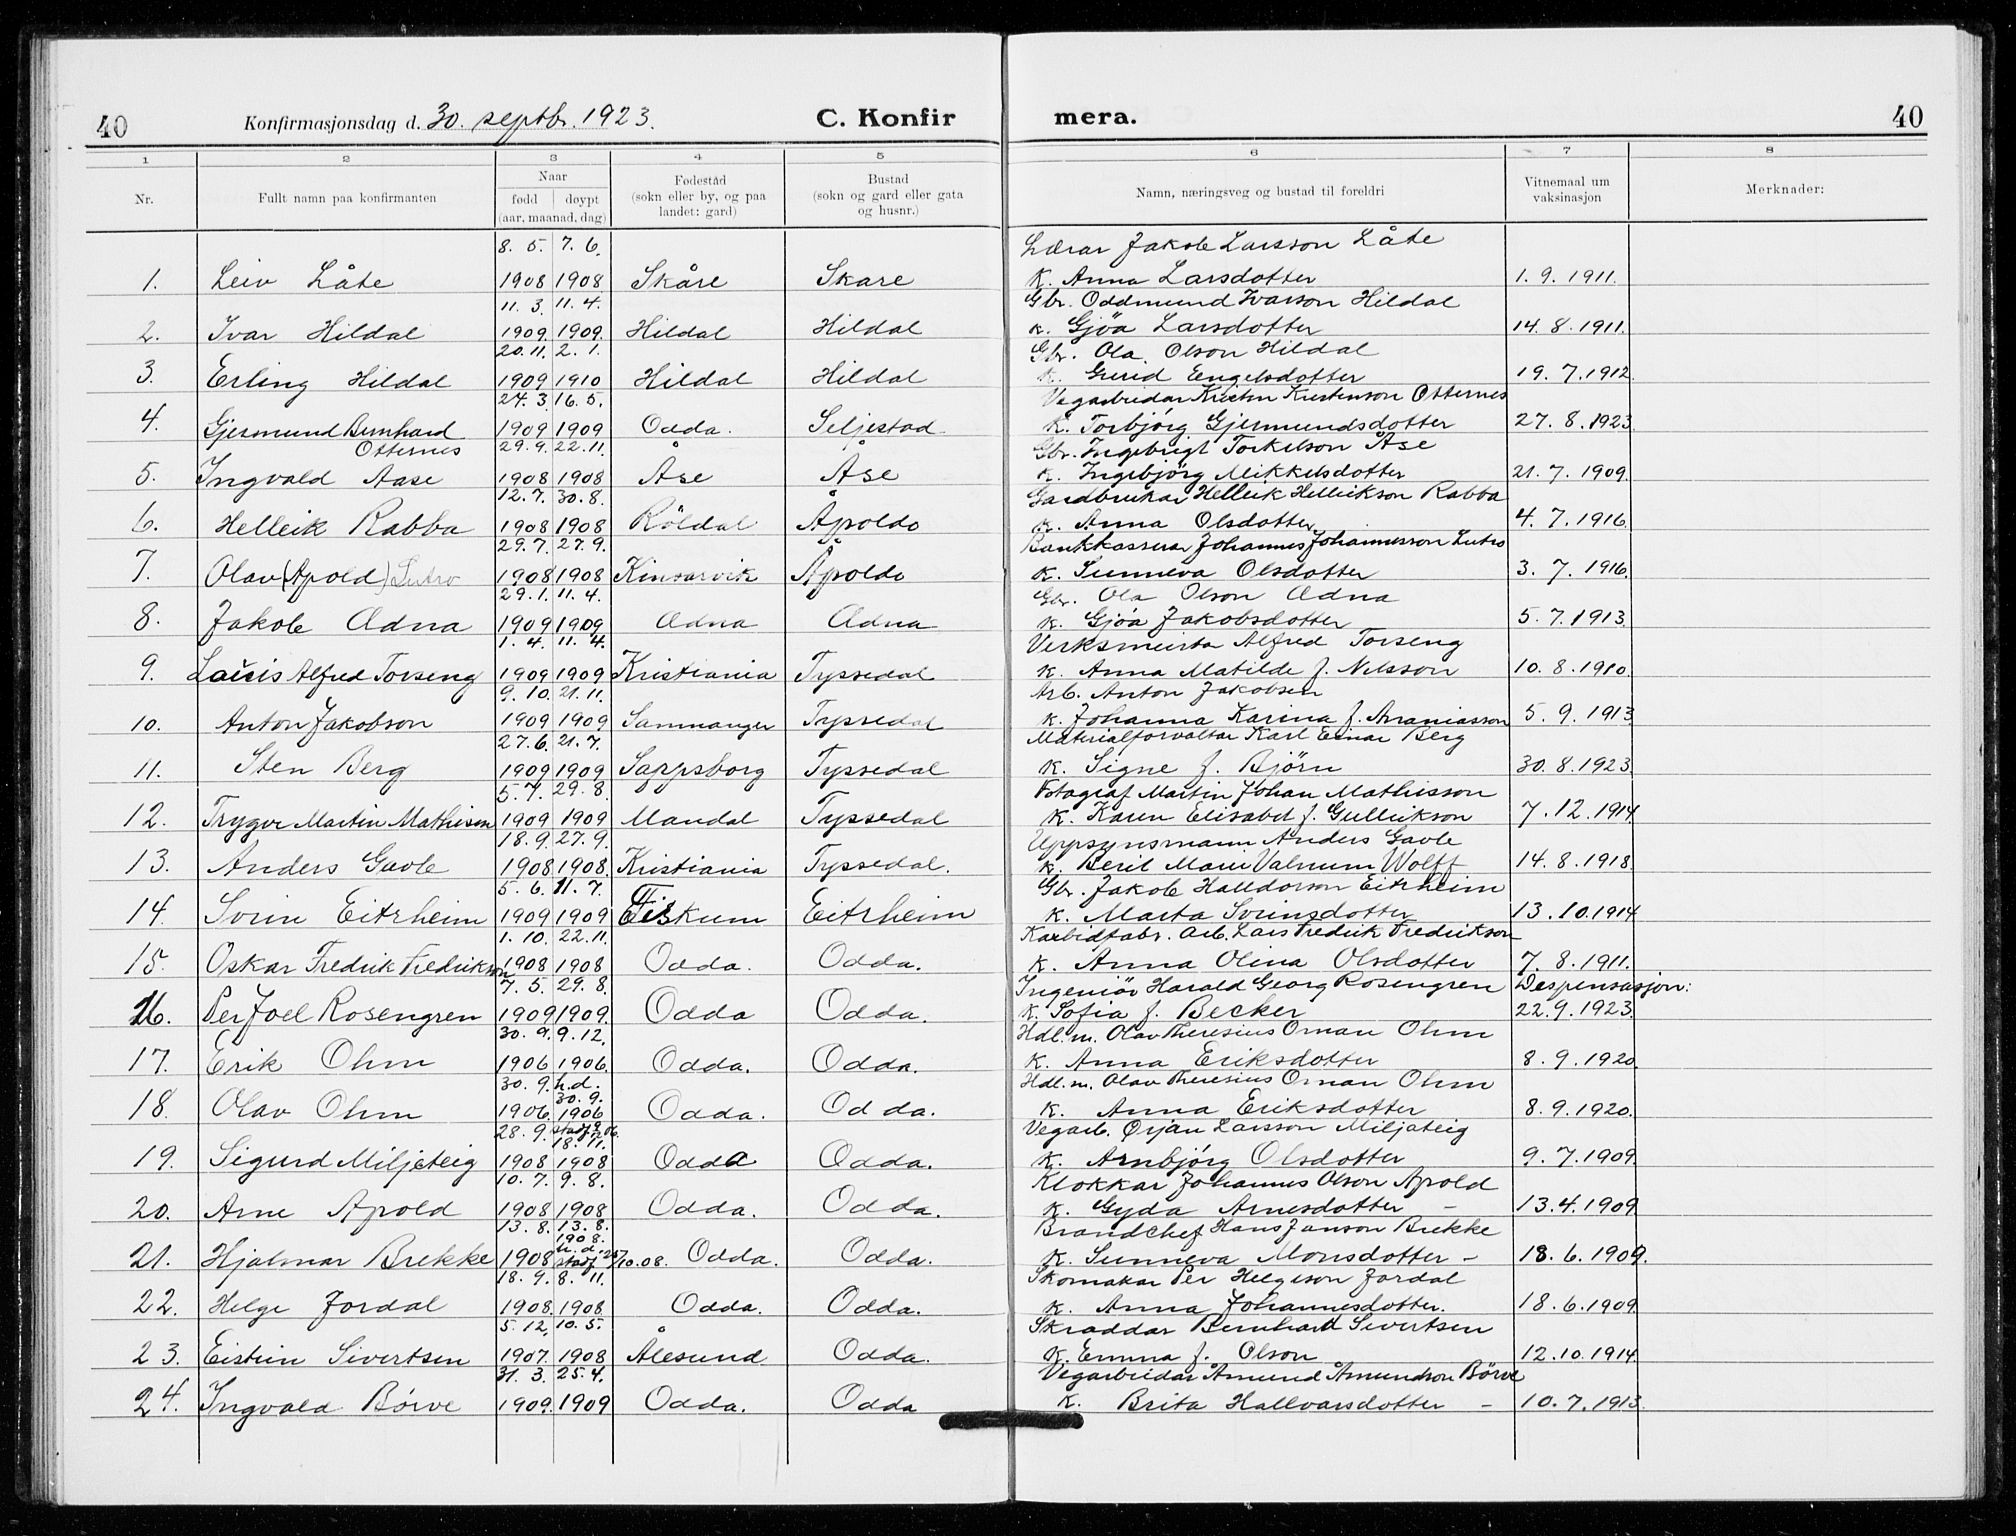 40
Konfirmasjonsdag d. 30. septbr. 1923.
C. Konfir mera.
40
1 2 3 4 5 6 7 8
Nr.
Fullt namn paa konfirmanten
Naar
fødd døypt
(aar, maanad, dag)
Fødeståd
(sokn eller by, og paa
landet: gard)
Bustad
(sokn og gard eller gata
og husnr.)
Namn, næringsveg og bustad til foreldri
Vitnemaal um
vaksinasjon
Merknader:
8. 5. 7. 6. Lærar Jakob Larsson Låte
1. Leiv Låte 1908 1908 Skåre Skare K. Anna Larsdotter 1. 9. 1911.
11. 3. 11. 4. Gbr. Oddmund Ivarson Hildal
2. Ivar Hildal 1909. 1909. Hildal Hildal K. Gjöa Larsdotter 14. 8. 1911.
20. 11. 2. 1. Gbr. Ola Olson Hildal
3. Erling Hildal 1909 1910 Hildal Hildal K. Gurid Engelsdotter 19. 7. 1912.
24. 3. 16. 5. Vegarbeidar Kristen Kristenson Otternes
4. Gjermund Bernhard 1909 1909 Odda. Seljestad K. Torbjörg Gjermundsdotter 27. 8. 1923
Otternes 29. 9. 22. 11. Gbr. Ingebrigt Torkelson Åse
5. Ingvald Aase 1908 1908 Åse Åse K. Ingebjörg Mikkelsdotter 21. 7. 1909.
12. 7. 30. 8. Gardbrukar Helleik Helleikson Rabba
6. Helleik Rabba 1908 1908 Röldal Åpoldo K. Anna Olsdotter 4. 7. 1916.
29. 7. 27. 9. Bankkasserar Johannes Johannesson Lutro
7. Olav (Apold) Lutro 1908 1908 Kinsarvik Åpoldo K. Sunneva Olsdotter 3. 7. 1916.
29. 1. 11. 4. Gbr. Ola Olson Ædna
8. Jakob Ædna 1909 1909 Ædna Ædna K. Gjöa Jakobsdotter 5. 7. 1913.
1. 4. 11. 4. Verksmeistar Alfred Torseng
9. Louis Alfred Torseng 1909 1909 Kristiania Tyssedal K. Anna Matilde f. Nilsson 10. 8. 1910.
9. 10. 21. 11. Arb. Anton Jakobsen
10. Anton Jakobson 1909 1909 Sammanger Tyssedal K. Johanna Karina f. Ananiasson 5. 9. 1913
27. 6. 21. 7. Materialforvaltar Karl Einar Berg
11. Sten Berg 1909 1909 Sappsborg Tyssedal K. Signe f. Björn 30. 8. 1923.
5. 7. 29. 8. Fotograf Martin Johan Mathisson
12. Trygve Martin Mathisen 1909 1909 Mandal Tyssedal K. Karen Elisabet f. Gullikson 7. 12. 1914
18. 9. 27. 9. Uppsynsmann Anders Gavle
13. Anders Gavle 1908 1908. Kristiania Tyssedal. K. Beril Marie Wolff 14. 8. 1918.
5. 6. 11. 7. Gbr. Jakob Halldorson Eitrheim
14. Svein Eitrheim 1909 1909 Eiskum Eitrheim K. Marta Sveinsdotter 13. 10. 1914
1. 10. 22. 11. Karbidfabr. Arb. Lars Fredrik Fredrikson
15. Oskar Fredrik Fredrikson 1908 1908 Odda. Odda. K. Anna Olina Olsdotter 7. 8. 1911.
7. 5. 29. 8. Ingeniör Harald Georg Rosengren Despensasjon:
16. Per Joel Rosengren 1909 1909. Odda Odda. K. Sofia f. Becker 22. 9. 1923.
30. 9. 9. 12. Hdl. m. Olav Theresius Ornan Ohm
17. Erik Ohm 1906 1906. Odda. Odda. K. Anna Eriksdotter 8. 9. 1920
30. 9. h.d. 30. 9. Hdl. m. Olav Theresius Ornan Ohm
18. Olav Ohm 1906. 1906 Odda. Odda. K. Anna Eriksdotter 8. 9. 1920.
28. 9. 18. 11. Vegarb. Ørjan Larsson Miljateig
19. Sigurd Miljeteig 1908 1908 Odda Odda. K. Arnbjórg Olsdotter 9. 7. 1909.
10. 7. 9. 8. Klokkar Johannes Olson Apold
20. Arne Apold 1908 1908 Odda. Odda. K. Gyda Arnesdotter – 13. 4. 1909
13. 8. 13. 8. 1908. Brandchef Hans Janson Brekke
21. Hjalmar Brekke 1908 h.d. stadf 25/10.08. Odda. Odda. K. Sunneva Monsdotter – 18. 6. 1909.
18. 9. 8. 11. Skomakar Per Helgeson Jordal
22. Helge Jordal 1908. 1908 Odda. Odda. K. Anna Johannesdotter. 18. 6. 1909
5. 12. 10. 5. Skraddar Bernhard Sivertsen
23. Eistein Sivertsen 1907. 1908 Ålesund Odda. K. Emma f. Olson 12. 10. 1914
31. 3. 25. 4. Vegarbeidar Åmund Åmundson Börve
24. Ingvald Börve 1909. 1909 Odda. Odda K. Brita Hallvarsdotter – 10. 7. 1913.